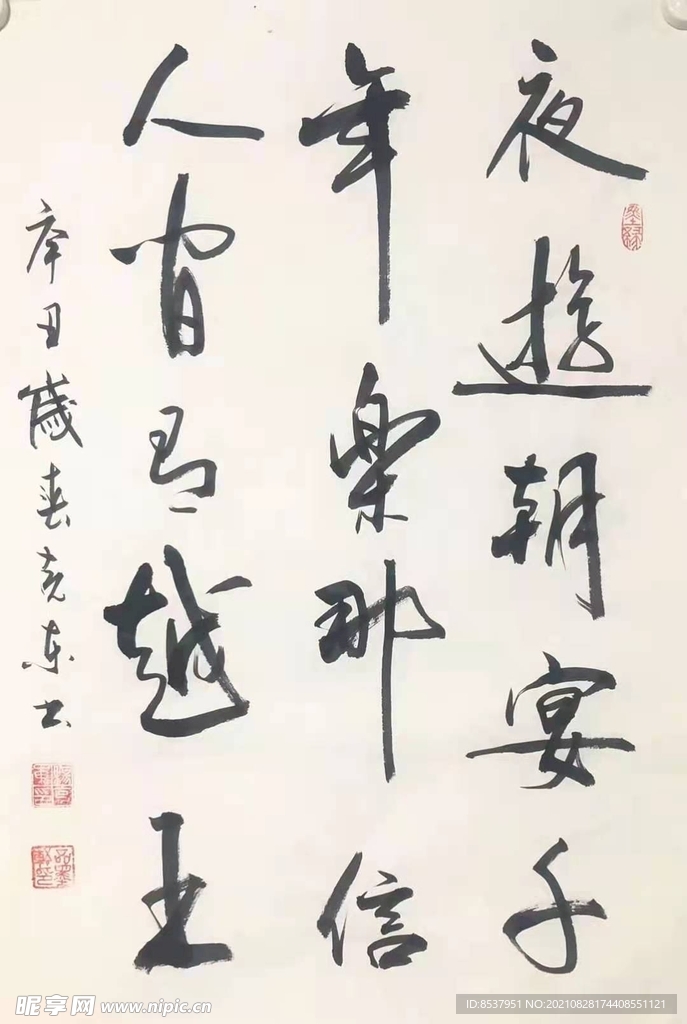 夜遊朝宴千
年樂那信
人間有越王
辛丑歲春克东书
昵享网 www.nipic.cn
ID:8537951 NO:20210828174408551121